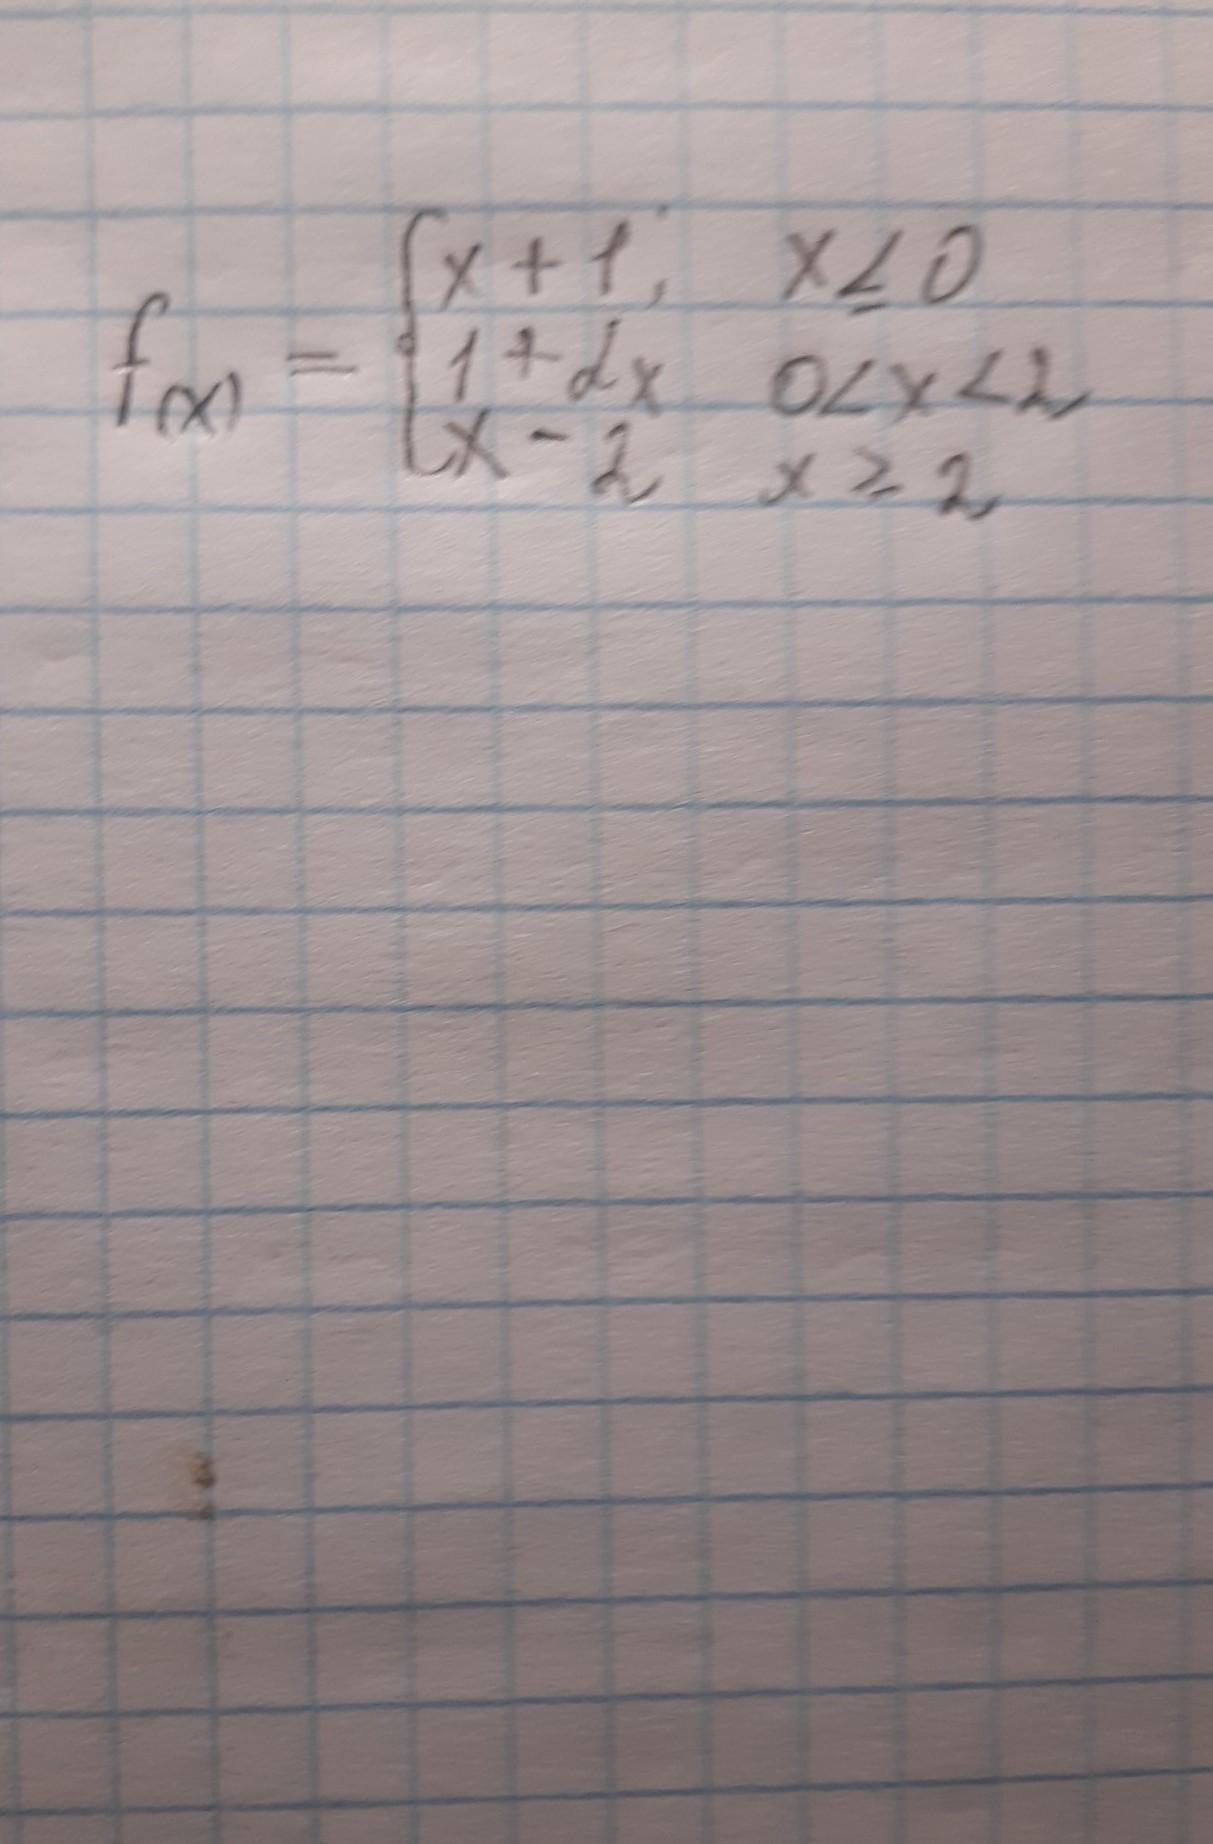 f(x) = { x + 1, x ≤ 0
1 + 2x 0 < x < 2
x - 2 x ≥ 2